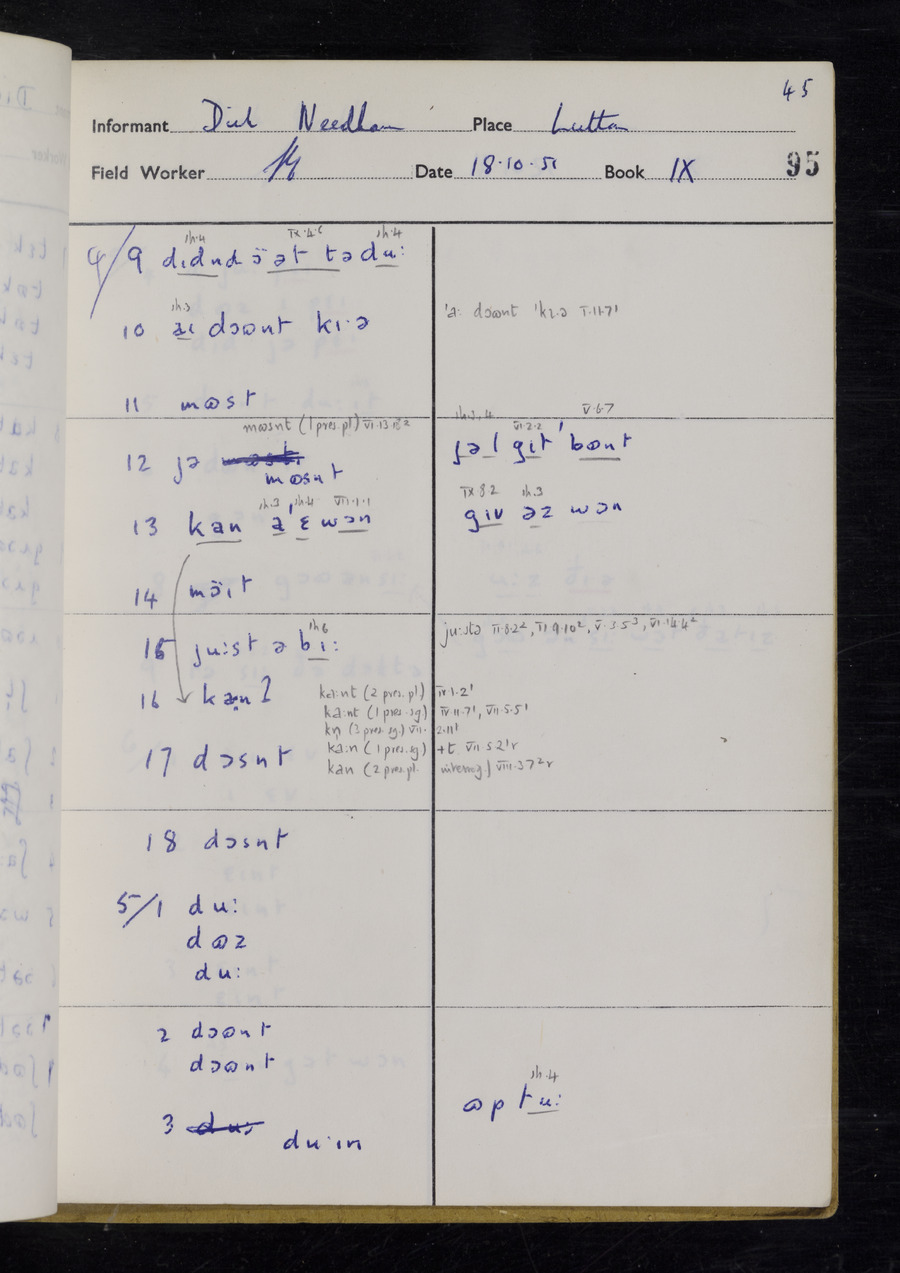 45
Informant Dick Needham Place Lutton
Field Worker Date 18·10·51 Book IX 95
sh.4 IX·4·6 sh·4
4/9 dɪdnd ɔ̈ət tə du:
sh.3
10 aɪ dɔɷnt kɪ·ə
'a: dɔɷnt 'kɪ·ə V·11·7'
11 mɷst
mɷsnt (1 pres.pl) VI·13·18²
12 jə mɷsnt
sh.3,4 V·6·7
VI·2·2
ʃəl gɪt 'bɷnt
sh.3 sh.4 VII·1·1
13 kan a 'ɛ wɔn
IX·8·2 sh.3
gɪv əz wɔn
14 mɔ̈ɪt
sh6
15 ju:st ə bɪ:
ju:stə II·8·2², VI·9·10², V·3·5³, VI·14·4²
16 kan?
ka:nt (2 pres. pl.) IV·1·2'
ka:nt (1 pres. sg) IV·11·7', VII·5·5'
kn̩ (3 pres. sg.) VII·2·11'
ka:n (1 pres. sg) +t VII 5 2'r
kan (2 pres. pl. interrog.) VIII·3 7²r
17 dɔsnt
18 dɔsnt
5/1 du:
dɷz
du:
2 dɔɷnt
dɔɷnt
sh·4
ɷp tu:
3 du·ɪn